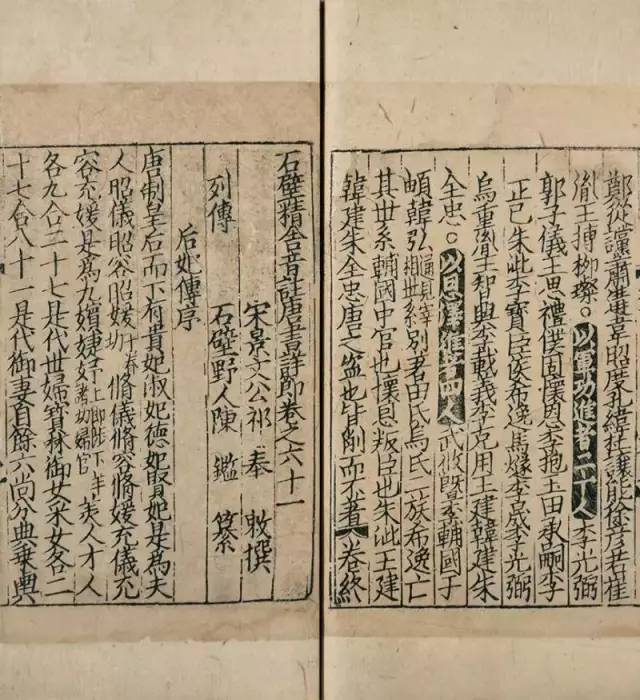 鄭從讜蕭遘韋昭度孔緯杜讓能徐彥若崔
胤王摶柳璨。以軍功進者二十人李光弼
郭子儀王思禮僕固懷恩李抱玉田承嗣李
正己朱泚李寶臣侯希逸馬燧李晟李光弼
烏重胤王智興李載義李克用王建韓建朱
全忠。以恩澤進者四人武攸暨李輔國于
頔韓弘通見宰相世系別著田氏烏氏二族希逸亡
其世系輔國中官也懷恩叛臣也朱泚王建
韓建朱全忠唐之盜也皆削而不著 卷終
石壁精舍音註唐書詳節卷之六十一
宋景文公祁 奉 敕撰
列傳 石壁野人陳 鑑 纂
后妃傳序
唐制皇后而下有貴妃淑妃德妃賢妃是為夫
人昭儀昭容昭媛于眷切脩儀脩容脩媛充儀充
容充媛是為九嬪婕妤上即涉下羊諸切婦官美人才人
各九合二十七是代世婦寶林御女采女各二
十七合八十一是代御妻自餘六尚分典乘輿